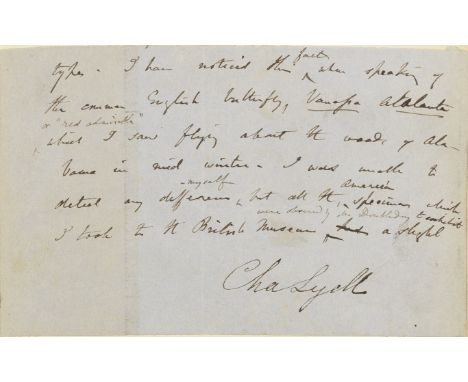 fact
types - I have noticed this ^ when speaking of
the common English butterfly, Vanessa atalanta
or "red admirable"
^ which I saw flying about the woods of Ala-
bama in mid winter - I was unable to
- myself American
detect any difference ^, but all the ^ specimens which
were found by Mr Doubleday to exhibit
I took to the British Museum ^ had a slight
Cha Lyell